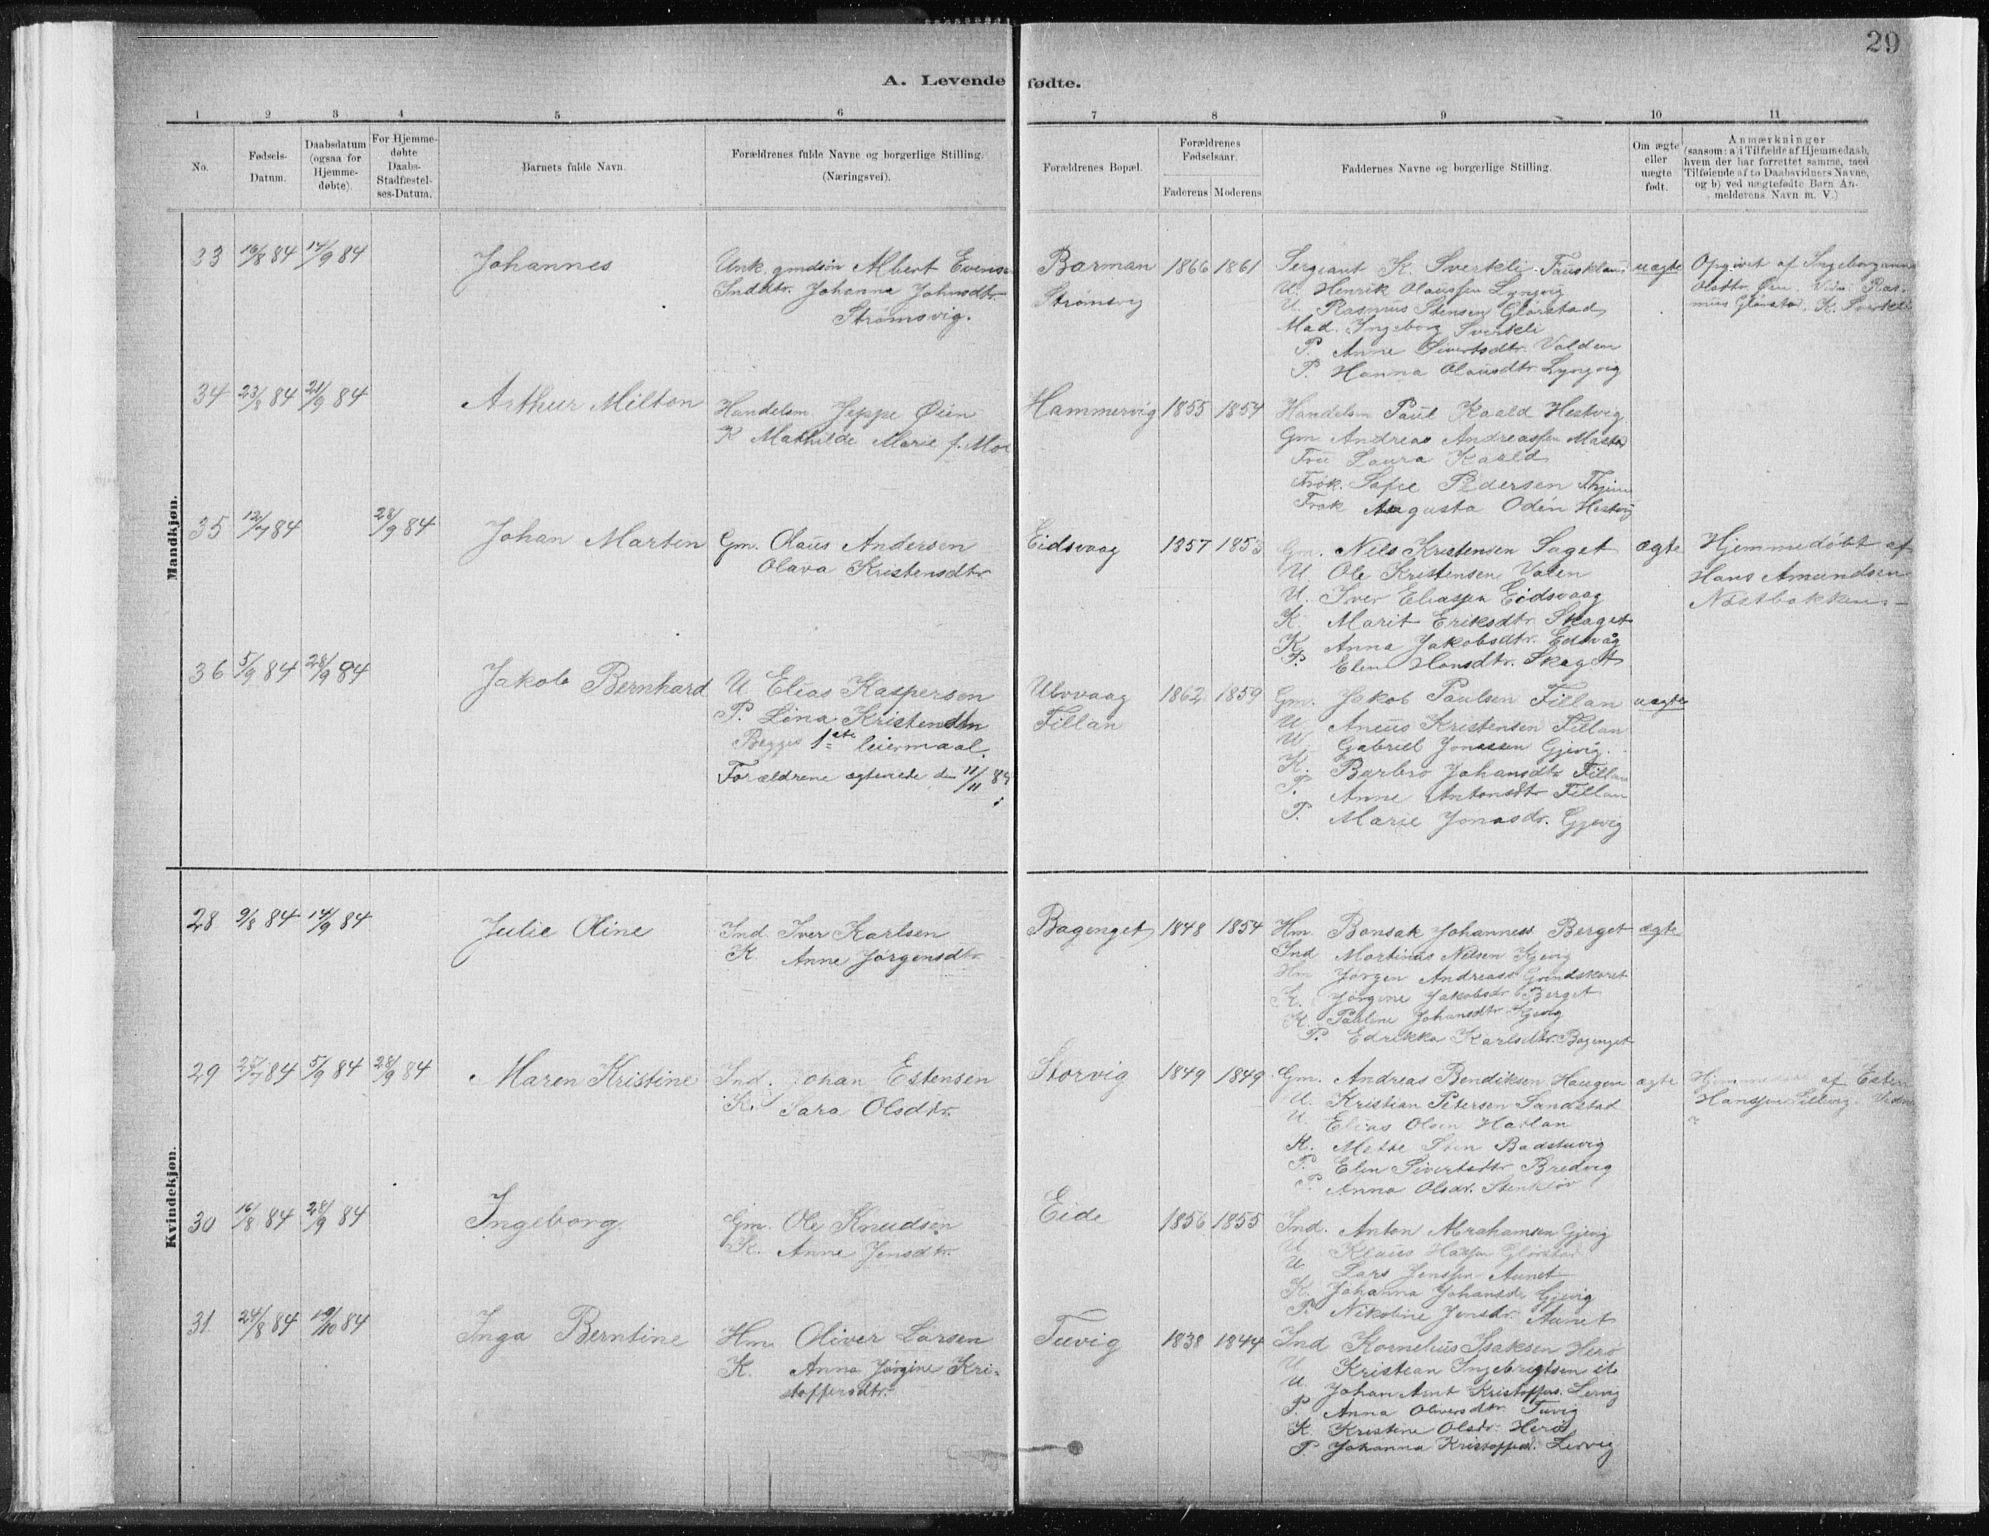 29
A. Levende fødte.
1 2 3 4 5 6 7 8 9 10 11
No.
Fødsels-
Datum.
Daabsdatum
(ogsaa for
Hjemme-
døbte).
For Hjemme-
døbte
Daabs-
Stadfæstel-
ses-Datum.
Barnets fulde Navn.
Forældrenes fulde Navne og borgerlige Stilling.
(Næringsvei).
Forældrenes Bopæl.
Forældrenes
Fødselsaar.
Faderens Moderens
Faddernes Navne og borgerlige Stilling.
Om ægte
eller
uægte
født.
Anmærkninger
(saasom: a) i Tilfælde af Hjemmedaab,
hvem der har forrettet samme, med
Tilføiende af to Daabsvidners Navne,
og b) ved uægtefødte Børn An-
melderens Navn m. V.)
Mandkjøn.
33 16/8 84 14/9 84 Johannes
Unk. gmdsøn Albert Evensen
Inderstr. Johanna Johnsdtr.
Strømsvig.
Barman
Strømsvig
1866 1861
Sergeant K. Sverkli
U. Henrik Olaussen Lyngvig
U. Rasmus Stensen Glørstad
Mad. Ingeborg Sverkli
P. Anne Sivertsdtr. Valden
P. Hanna Olausdtr. Lyngvig
uægte
Opgivet af Ingeborganna
Olsdtr. Øien. Vidn: Ras-
mus Glørstad. K. Sverkli
34 23/8 84 21/9 84 Arthur Milton
Handelsm. Jeppe Øien
K Mathilde Marie f. Moe
Hammervig 1855 1854
Handelsm Paul Kaald Hestvig
Gm Andreas Andreassen Mastad
Frue Laura Kaald
Frøk. Sofie Pedersen
Frøk Augusta Odén Hestvig
35 12/7 84 28/9 84 Johan Marten
Gm. Olaus Andersen
Olava Kristensdtr
Eidsvaag 1857 1853
Gm. Nils Kristensen Saget
U Ole Kristensen Valen
U. Iver Eliassen Eidsvaag
K. Marit Eriksdtr. Skaget
K. Anna Jakobsdtr. Edsvåg
P. Elen Hansdtr. Skaget
ægte
Hjemmedøbt af
Hans Amundsen
Næstbakken
36 5/9 84 28/9 84 Jakob Bernhard
U Elias Kaspersen
P. Lina Kristensdtr
Begges 1ste leiermaal.
Forældrene ægtevede den 11/11 84
Ulvvaag
Fillan
1862 1859
Gm. Jakob Paulsen Fillan
U Aneus Kristensen Fillan
U. Gabriel Jonassen Gjevig.
K. Barbro Johansdtr Fillan
P. Anne Antonsdtr Fillan
P. Marie Jonasdr. Gjevig
uægte
Kvindekjøn.
28 9/8 84 14/9 84 Julie Oline
Ind. Iver Karlsen
K. Anne Jørgensdtr
Bagenget 1848 1854
Hm. Bonsak Johanness Berget
Ind Martinus Nilsen Kjevig
Hm Jørgen Andreass Grindskaret
K. Jørgine Jakobsdr Berget
K Pauline Johansdtr. Kjevig
P. Edrikka Karlsdtr. Bagenget
ægte
29 25/7 84 5/9 84 28/9 84 Maren Kristine
Ind. Johan Estensen
K. Sara Olsdtr.
Storvig 1849 1849
Gm. Andreas Bendiksen Haugen
U. Kristian Petersen Sandstad
U. Elias Olsen Havlan
K. Mette Sten Badstuvig
P. Elen Sivertsdtr Bredvig
P. Anna Olsdr. Stenklöv
ægte
Hjemmedøbt af Esten
Hanssen
30 16/8 84 28/9 84 Ingeborg
Gm. Ole Knudsen
K. Anne Jensdtr.
Eide 1856 1855
Ind. Anton Abrahamsen Gjevig
U Klaus Glørstad
U Lars Jenssen Aunet
K. Johanna Johansdr Gjevig
P. Nikoline Jonsdr. Aunet
31 24/8 84 19/10 84 Inga Berntine
Hm. Oliver Larsen
K. Anna Jørgine Kri-
stoffersdtr.
Tuvig 1838 1844
Ind Kornelius Isaksen Herö
U Kristian Ingebrigtsen it.
U. Johan Arnt Kristoffers. Lervig
P. Anna Oliversdtr. Tuvig
K. Kristine Olsdr. Herö
P Johanna Kristoffersd. Lervig